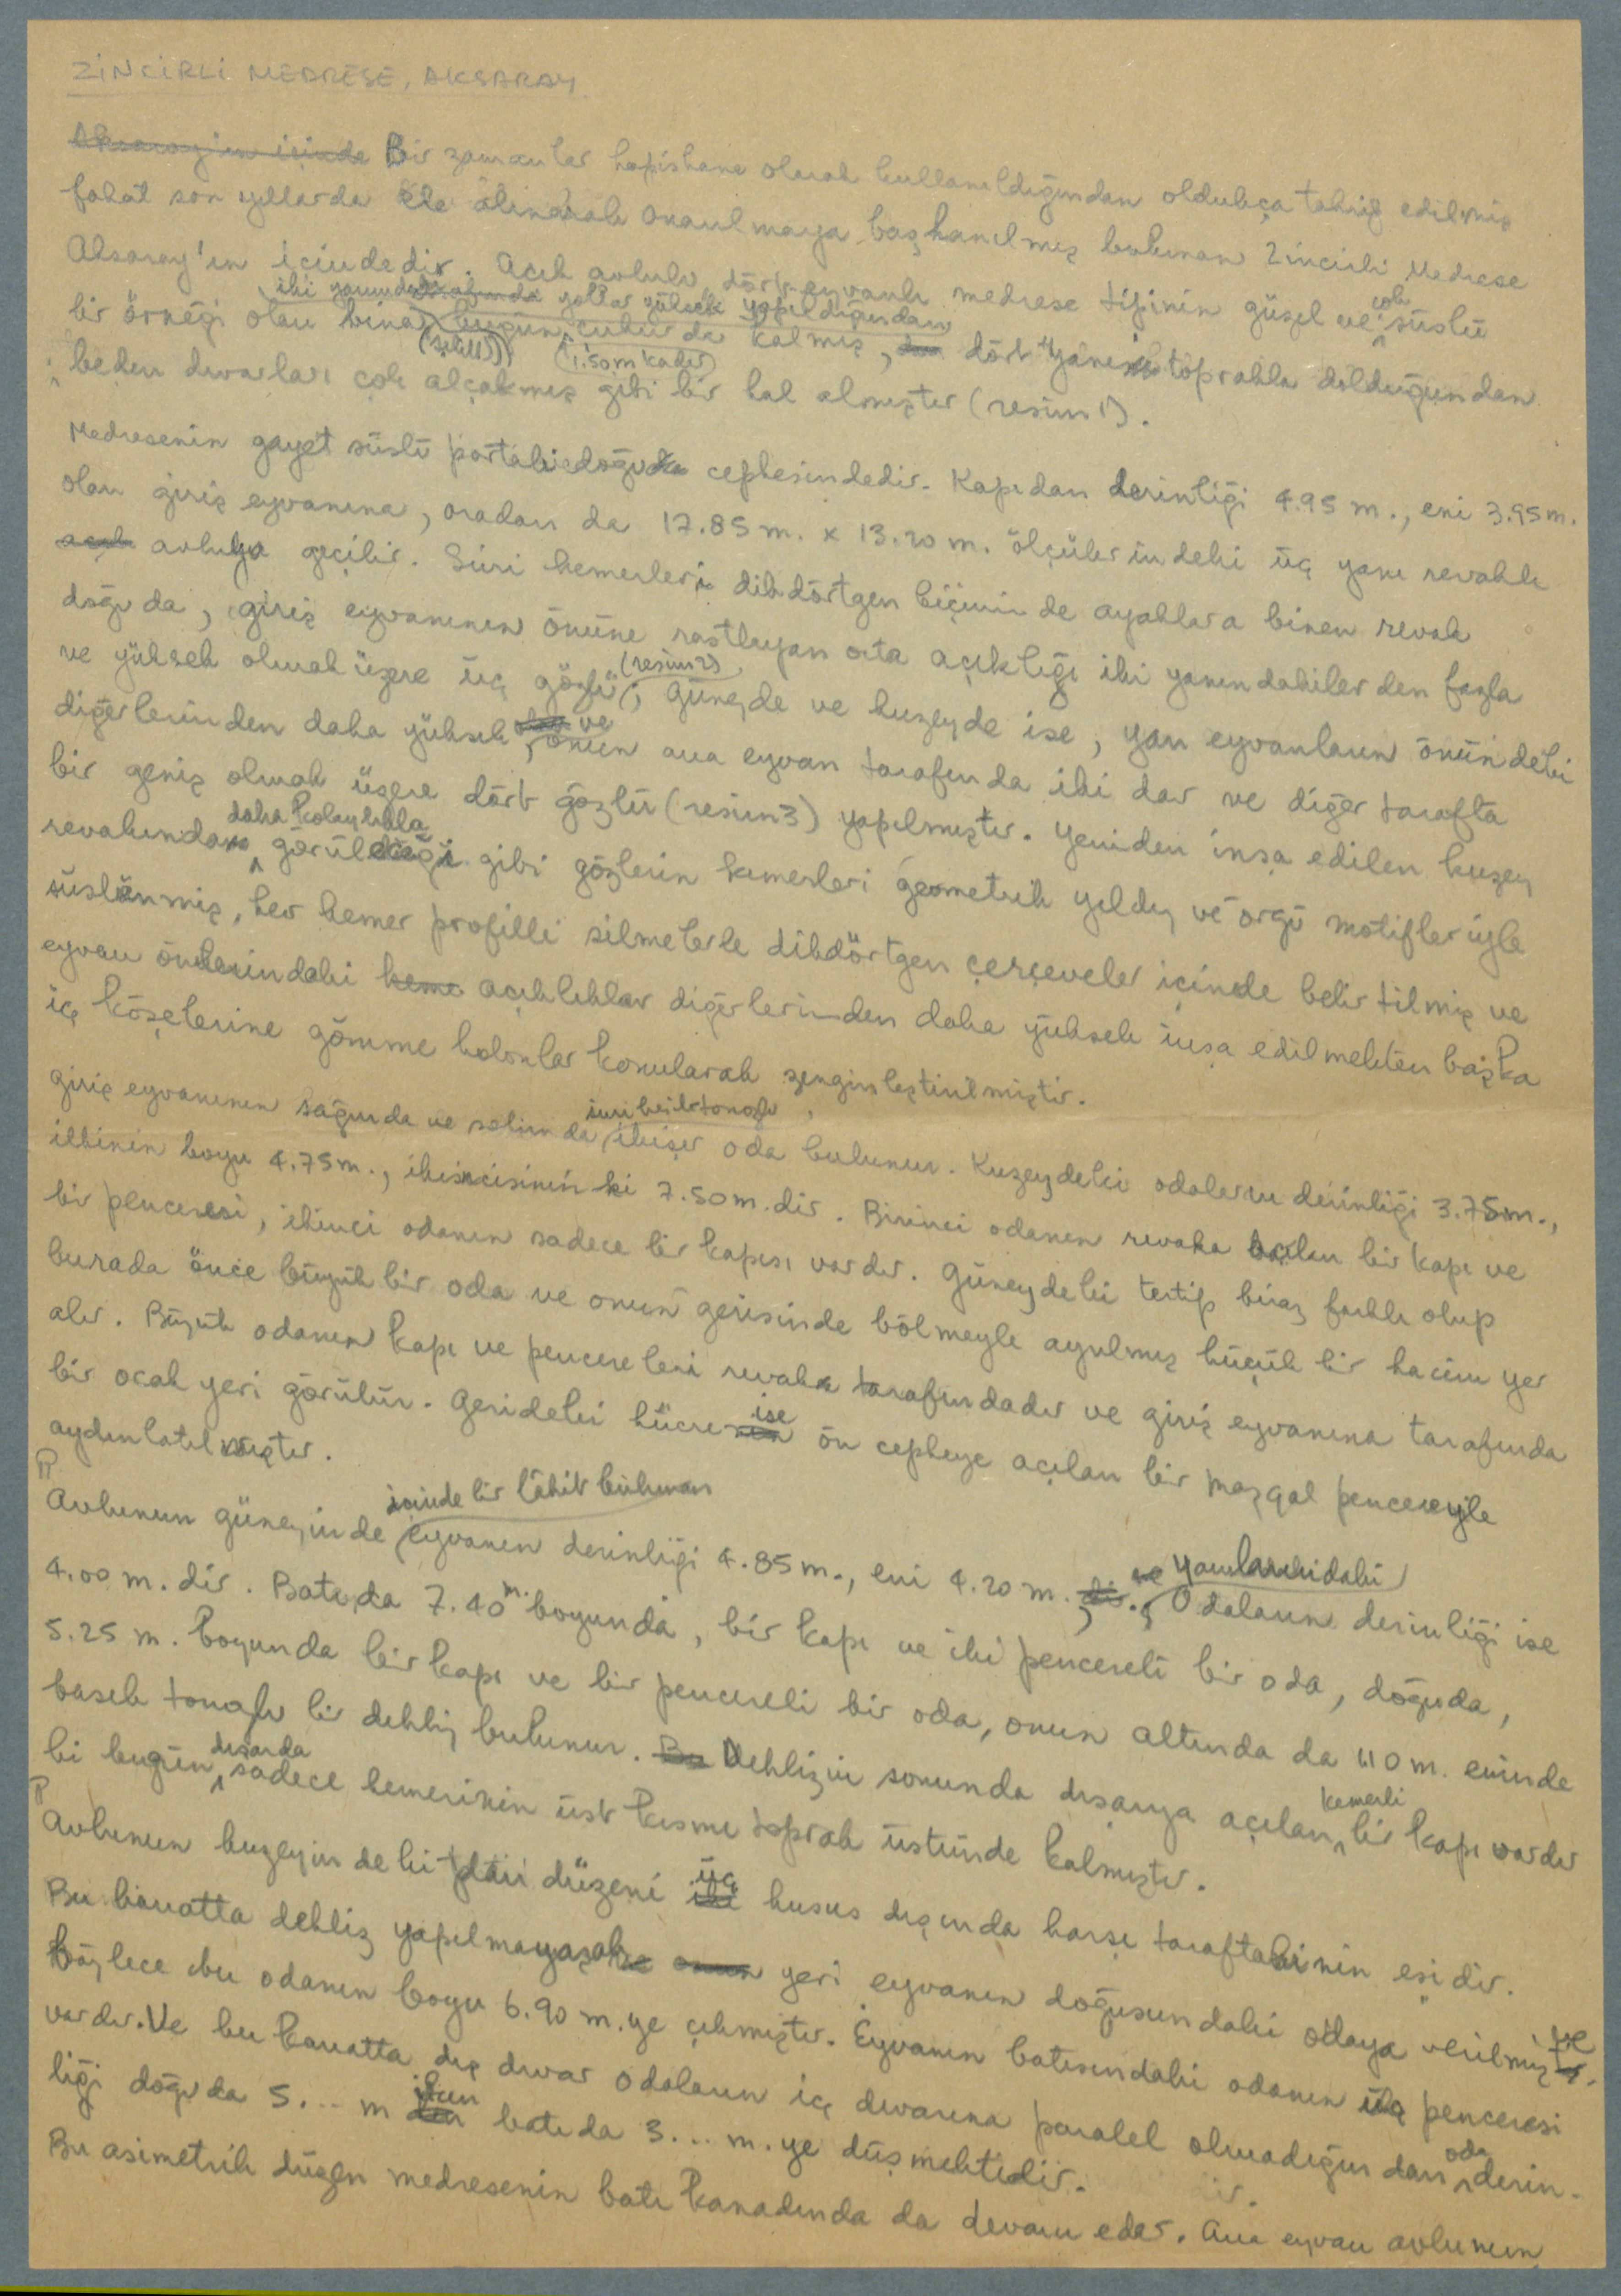 ZİNCİRLİ MEDRESE, AKSARAY
Aksaray'ın içinde Bir zamanlar hapishane olarak kullanıldığından oldukça tahrip edilmiş
fakat son yıllarda ele alınarak onarılmaya başlanılmış bulunan Zincirli Medrese
Aksaray'ın içindedir. Açık avlulu, dört eyvanlı medrese tipinin güzel ve çok süslü
iki yanındaki yollar yüksek yapıldığından
bir örneği olan bina (şekil 1) bugün çukurda kalmış, dört yanı toprakla dolduğundan
(1.50 m kadar)
beden duvarları çok alçakmış gibi bir hal almıştır (resim 1).
Medresenin gayet süslü portali doğu cephesindedir. Kapıdan derinliği 4.95 m., eni 3.95 m.
olan giriş eyvanına, oradan da 17.85 m. x 13.20 m. ölçülerindeki üç yanı revaklı
açık avluya geçilir. Sivri kemerleri dikdörtgen biçiminde ayaklara binen revak
doğuda, giriş eyvanının önüne rastlayan orta açıklığı iki yanındakilerden fazla
ve yüksek olmak üzere üç gözlü (resim 2), güneyde ve kuzeyde ise, yan eyvanların önündeki
diğerlerinden daha yüksek, ve onun ana eyvan tarafında iki dar ve diğer tarafta
bir geniş olmak üzere dört gözlü (resim 3) yapılmıştır. Yeniden inşa edilen kuzey
revakından daha kolaylıkla görüldüğü gibi gözlerin kemerleri geometrik yıldız ve örgü motifleriyle
süslenmiş, her kemer profilli silmelerle dikdörtgen çerçeveler içinde belirtilmiş ve
eyvan önlerindeki keme açıklıklar diğerlerinden daha yüksek inşa edilmekten başka
iç köşelerine gömme kolonlar konularak zenginleştirilmiştir.
Giriş eyvanının sağında ve solunda sivri beşik tonozlu ikişer oda bulunur. Kuzeydeki odaların derinliği 3.75 m.,
ilkinin boyu 4.75 m., ikincisininki 7.50 m. dir. Birinci odanın revaka açılan bir kapı ve
bir penceresi, ikinci odanın sadece bir kapısı vardır. Güneydeki tertip biraz farklı olup
burada önce büyük bir oda ve onun gerisinde bölmeyle ayrılmış küçük bir hacim yer
alır. Büyük odanın kapı ve pencereleri revak tarafındadır ve giriş eyvanına tarafında
bir ocak yeri görülür. Gerideki hücre ise ön cepheye açılan bir mazgal pencereyle
aydınlatılmıştır.
Avlunun güneyinde içinde bir lâhit bulunan eyvanın derinliği 4.85 m., eni 4.20 m., ve yanlarındaki odaların derinliği ise
4.00 m. dir. Batıda 7.40 m. boyunda, bir kapı ve iki pencereli bir oda, doğuda,
5.25 m. boyunda bir kapı ve bir pencereli bir oda, onun altında da 1.10 m. eninde
basık tonozlu bir dehliz bulunur. Bu Dehlizin sonunda dışarıya açılan kemerli bir kapı vardır
ki bugün dışarda sadece kemerinin üst kısmı toprak üstünde kalmıştır.
Avlunun kuzeyindeki plân düzeni iki üç husus dışında karşı taraftakinin eşidir.
Bu kanatta dehliz yapılmayarak onun yeri eyvanın doğusundaki odaya verilmiş ve
böylece bu odanın boyu 6.90 m. ye çıkmıştır. Eyvanın batısındaki odanın üç penceresi
vardır. Ve bu kanatta dış duvar odaların iç duvarına paralel olmadığından oda derin-
liği doğuda 5... m iken batıda 3... m. ye düşmektedir.
Bu asimetrik düzen medresenin batı kanadında da devam eder. Ana eyvan avlunun